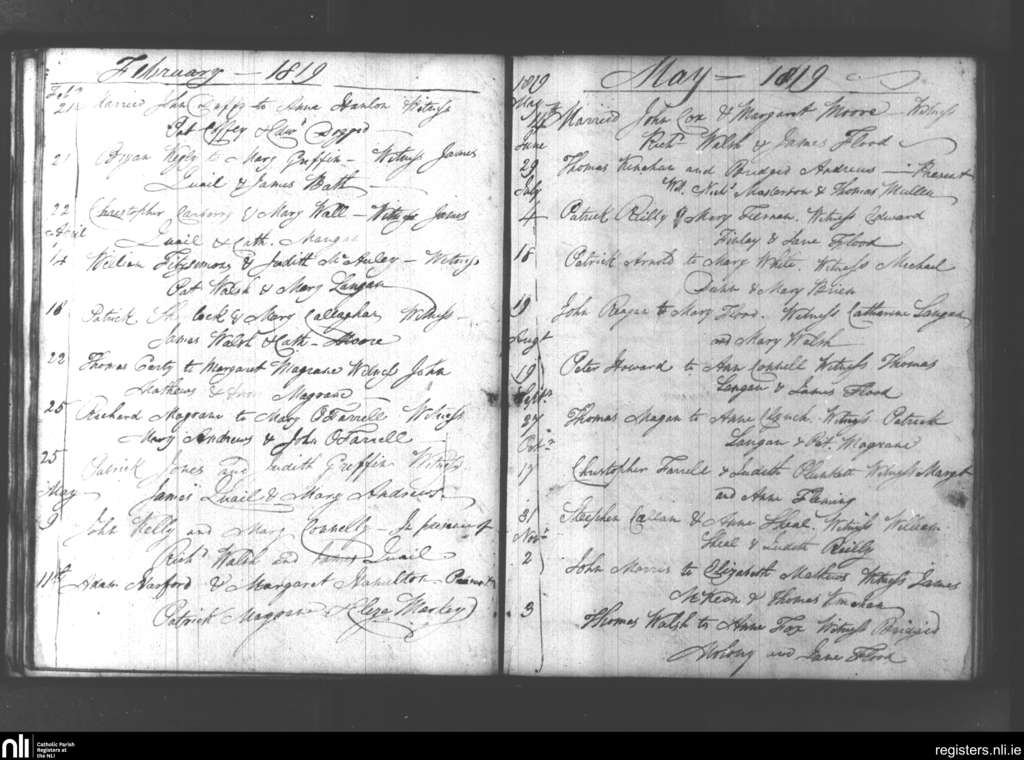 February — 1819
Feb.y
21 Married to Anne Hanlon Witness
Pat Coffey &
21 Bryan to Mary Griffin — Witness James
Quail & James
22 Christopher & Mary Wall — Witness James
April Quail & Cath.
14 Fitzsimons & Judith McAuley — Witness
Pat Walsh & Mary Langan
18 Patrick & Mary Callaghan Witness —
James Walsh & Cath — Moore
22 Thomas to Margaret Magrane Witness John
Mathews & Magrane
25 Richard Magrane to Mary O Farrell Witness
Mary Andrews & John O Farrell
25 Patrick Jones and Judith Griffin Witness
May James Quail & Mary Andrews
9 John Kelly and Mary Connelly — In presence of
Richd Walsh and Quail
11th Harford & Margaret Hamilton —
Patrick Magrane &
1819 May — 1819
May Married John Cox & Margaret Moore Witness
June Richd Walsh & James Flood
29 Thomas Kinahan and Bridged Andrews — Present
July Nichs Masterson & Thomas Mullen
4 Patrick Reilly & Mary Tiernan. Witness Edward
Finlay & Jane Flood
18 Patrick Arnold to Mary White. Witness Michael
& Mary Brien
19 John to Mary Flood. Witness Catharine Langan
Augt and Mary Walsh
19 Peter Howard to Ann Connell Witness Thomas
Septr Langan & James Flood
27 Thomas Magan to Anne Witness Patrick
Octr Langan & Pat Magrane
17 Christopher Farrell & Judith Plunkett Witness Margt
and Anne Fleming
31 Steephen Callan & Anne Witness William
Novr & Judith Reilly
2 John Morris to Elizabeth Mathews Witness James
McKeon & Thomas
3 Thomas Walsh to Anne Fox Witness Bridgid
and Jane Flood
nli Catholic Parish
Registers at
the NLI
registers.nli.ie